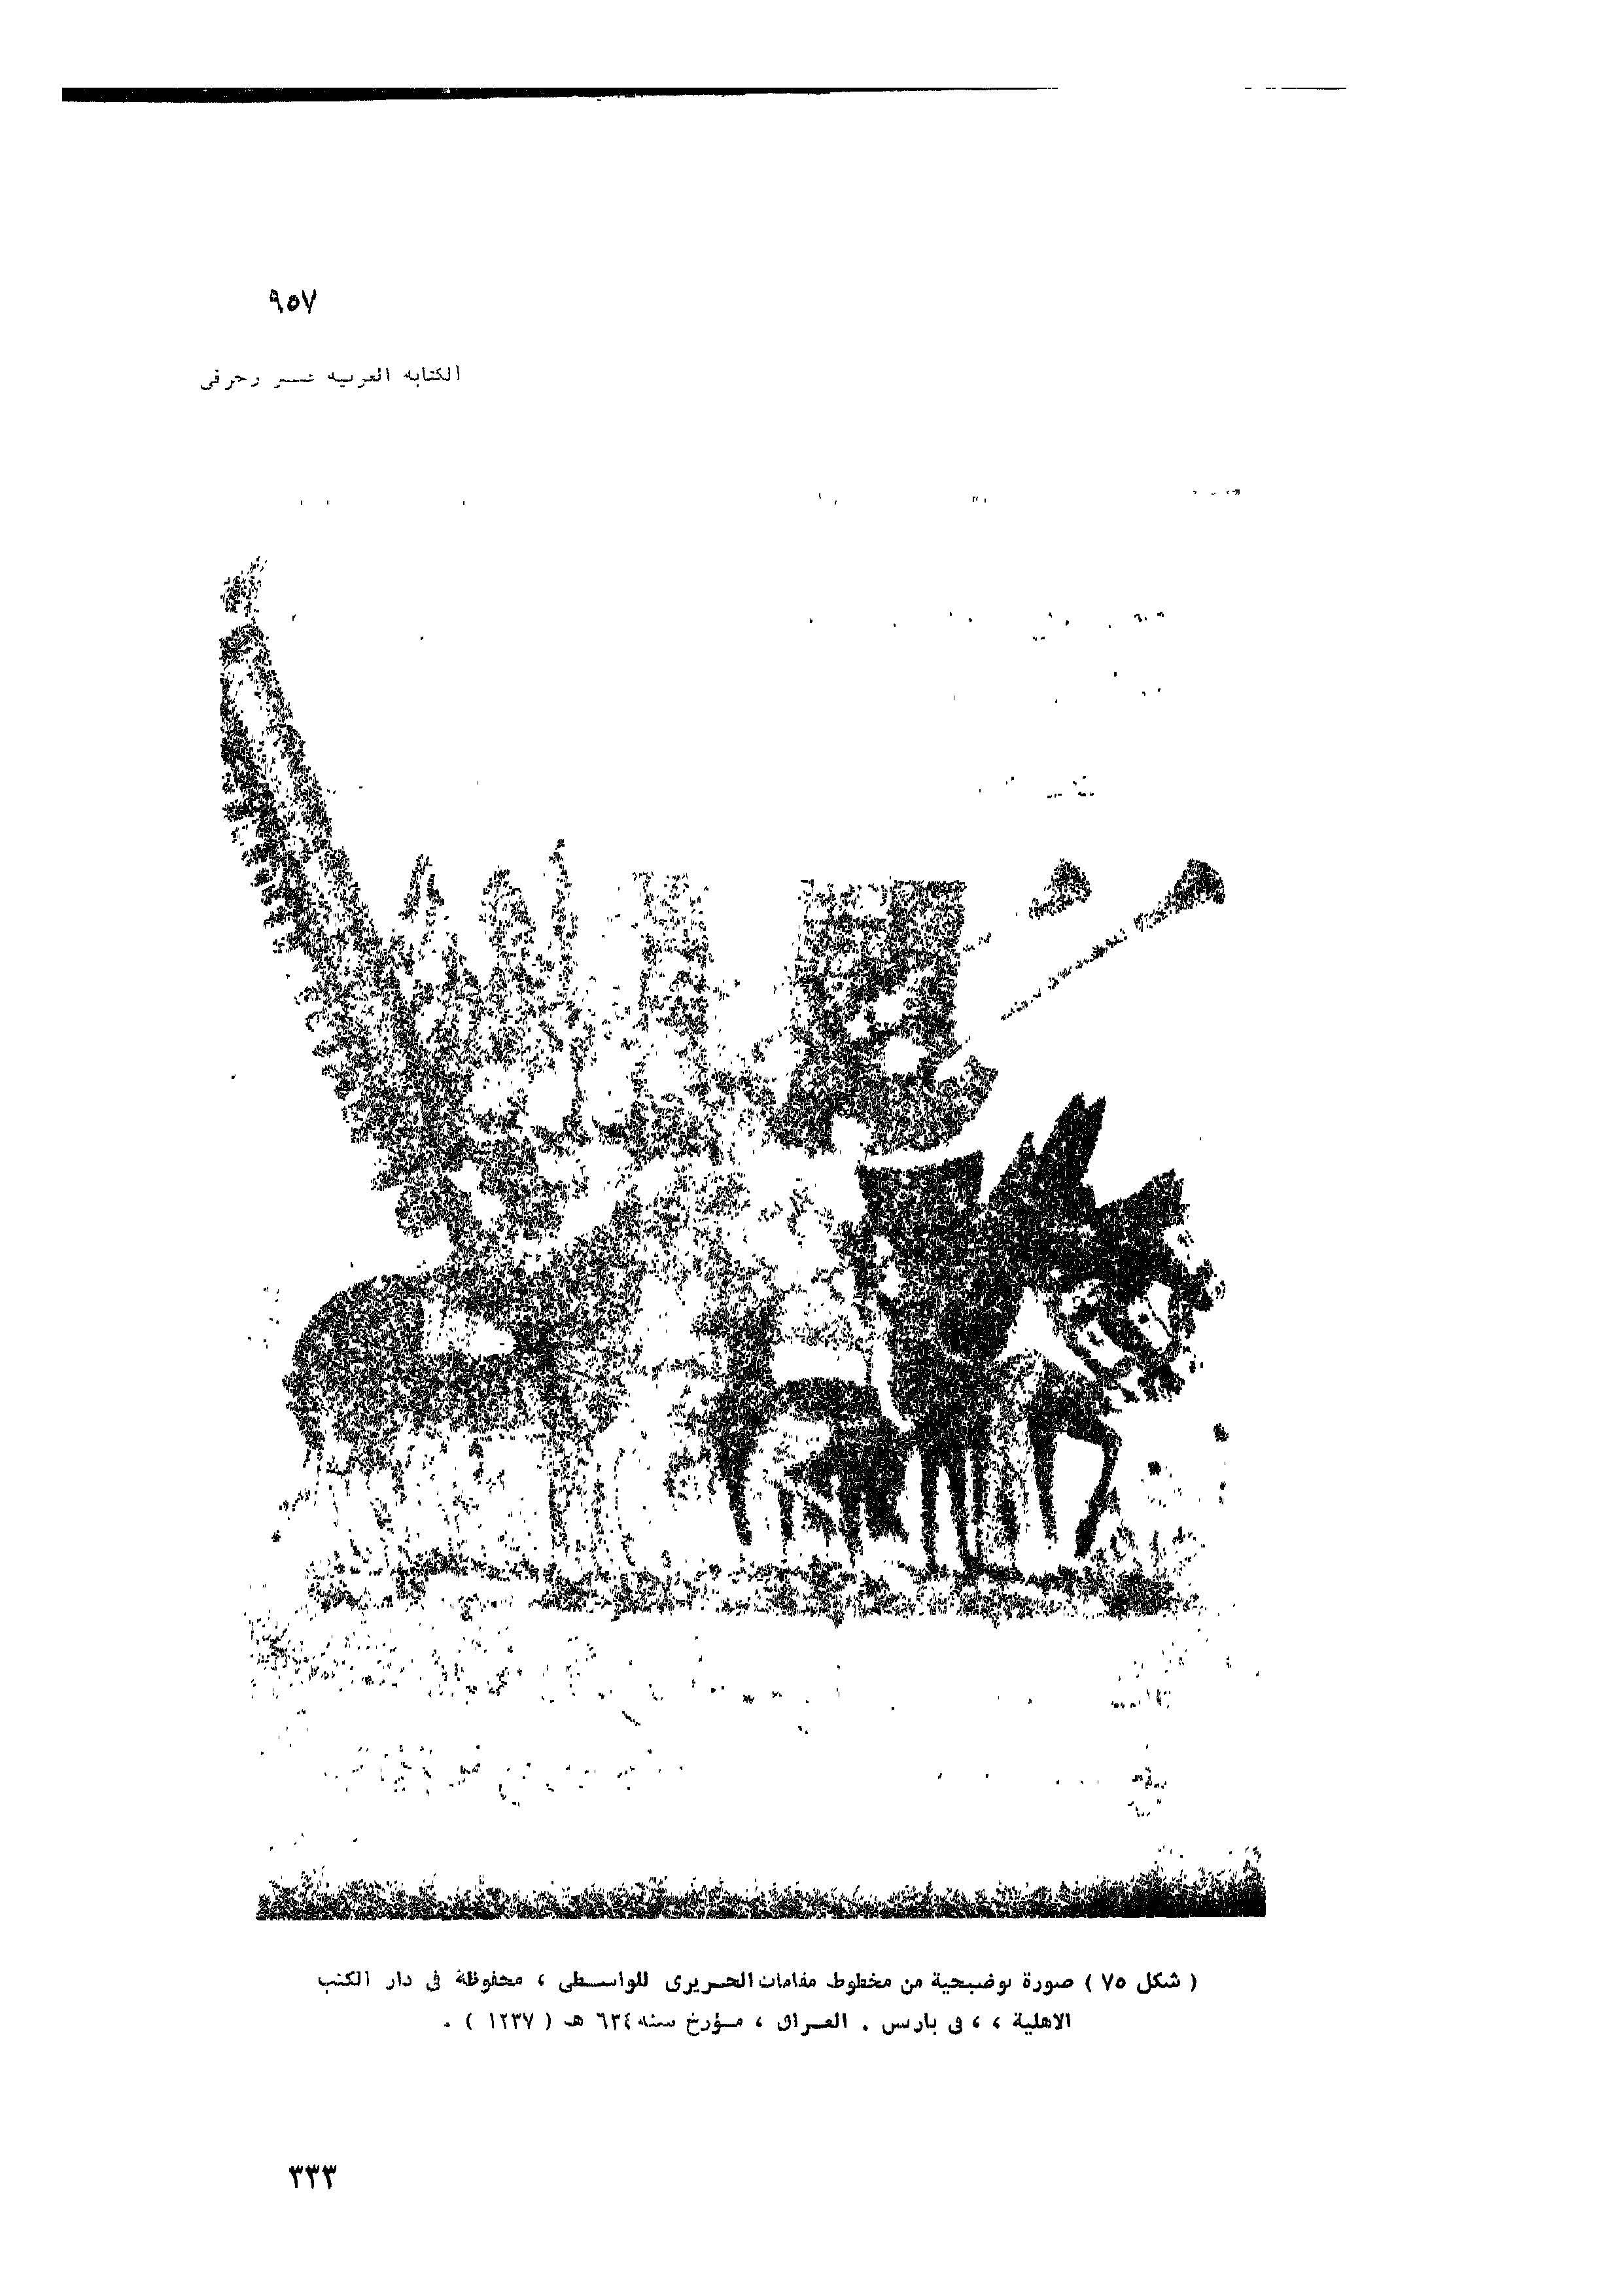 ٩٥٧
الكتابة العربية
( شكل ٧٥ ) صورة توضيحية من مخطوط مقامات الحريرى للواسطى ، محفوظة فى دار الكتب
الاهلية ، ، فى باريس . العراق ، مؤرخ سنة ٦٣٤ هـ ( ١٢٣٧ ) .
٣٣٣